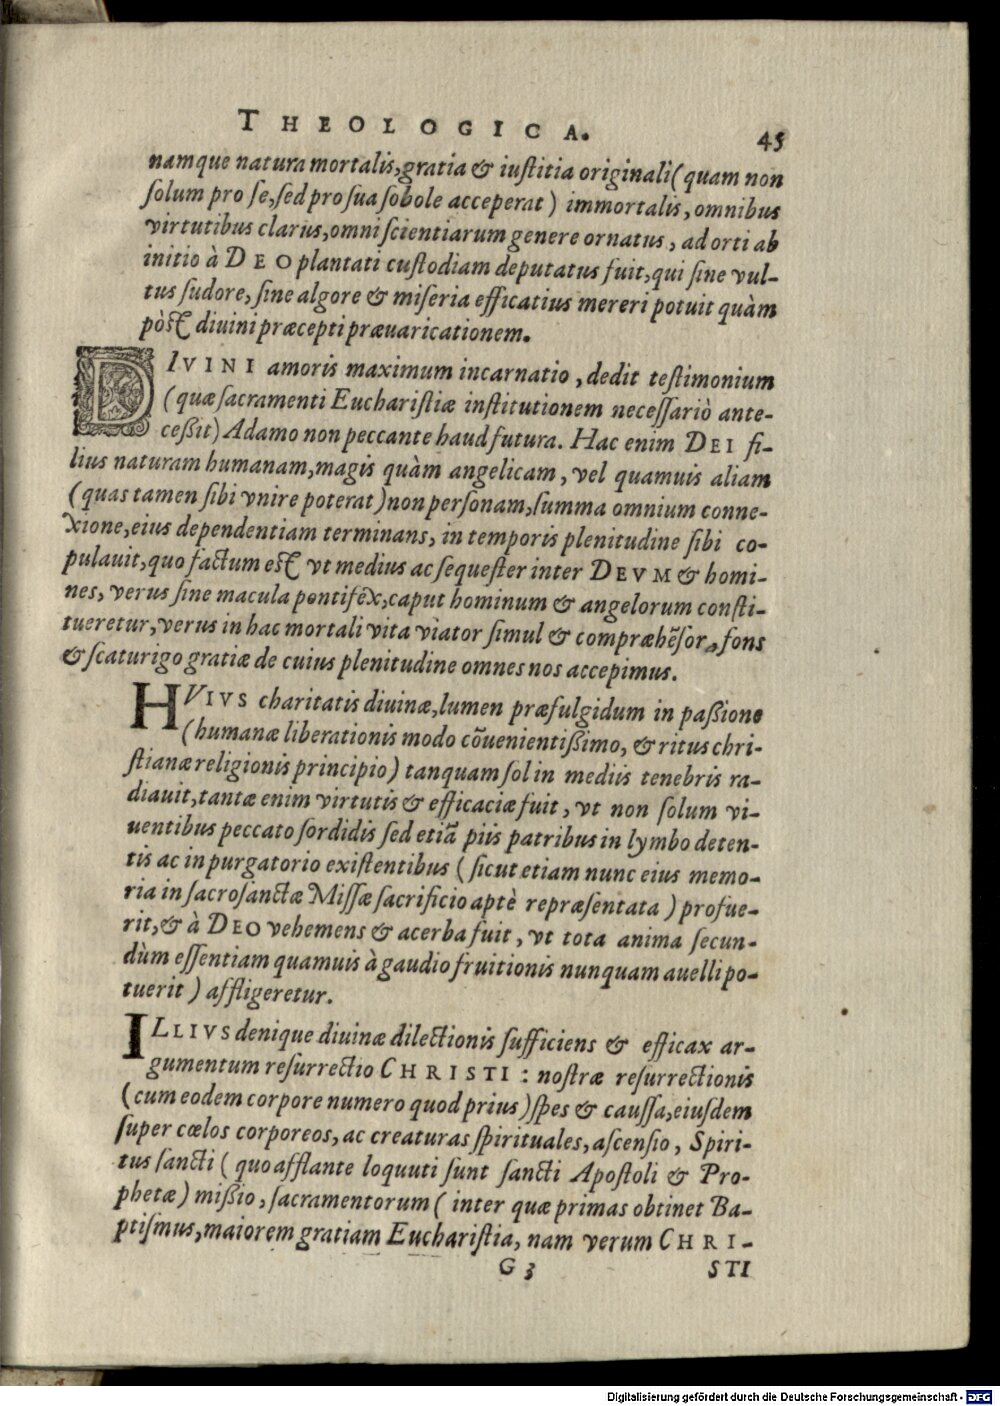 THEOLOGICA. 45
namque natura mortalis, gratia & iustitia originali (quam non
solum pro se, sed pro sua sobole acceperat) immortalis, omnibus
virtutibus clarus, omni scientiarum genere ornatus, ad orti ab
initio à DEO plantati custodiam deputatus fuit, qui sine vul-
tus sudore, sine algore & miseria efficatius mereri potuit quàm
pòst diuini præcepti præuaricationem.
DIVINI amoris maximum incarnatio, dedit testimonium
(quæ sacramenti Eucharistiæ institutionem necessariò ante-
ceßit) Adamo non peccante haud futura. Hac enim DEI fi-
lius naturam humanam, magis quàm angelicam, vel quamuis aliam
(quas tamen sibi vnire poterat) non personam, summa omnium conne-
xione, eius dependentiam terminans, in temporis plenitudine sibi co-
pulauit, quo factum est vt medius ac sequester inter DEVM & homi-
nes, verus sine macula pontifex, caput hominum & angelorum consti-
tueretur, verus in hac mortali vita viator simul & compræhēsor, fons
& scaturigo gratiæ de cuius plenitudine omnes nos accepimus.
HVIVS charitatis diuinæ, lumen præfulgidum in paßione
(humanæ liberationis modo cōuenientißimo, & ritus chri-
stianæ religionis principio) tanquam sol in mediis tenebris ra-
diauit, tantæ enim virtutis & efficaciæ fuit, vt non solum vi-
uentibus peccato sordidis sed etiā piis patribus in lymbo deten-
tis ac in purgatorio existentibus (sicut etiam nunc eius memo-
ria in sacrosanctæ Missæ sacrificio aptè repræsentata) profue-
rit, & à DEO vehemens & acerba fuit, vt tota anima secun-
dùm essentiam quamuis à gaudio fruitionis nunquam auelli po-
tuerit) affligeretur.
ILLIVS denique diuinæ dilectionis sufficiens & efficax ar-
gumentum resurrectio CHRISTI: nostræ resurrectionis
(cum eodem corpore numero quod prius) spes & caussa, eiusdem
super cœlos corporeos, ac creaturas spirituales, ascensio, Spiri-
tus sancti (quo afflante loquuti sunt sancti Apostoli & Pro-
phetæ) mißio, sacramentorum (inter quæ primas obtinet Ba-
ptismus, maiorem gratiam Eucharistia, nam verum CHRI-
G 3 STI
Digitalisierung gefördert durch die Deutsche Forschungsgemeinschaft - DFG